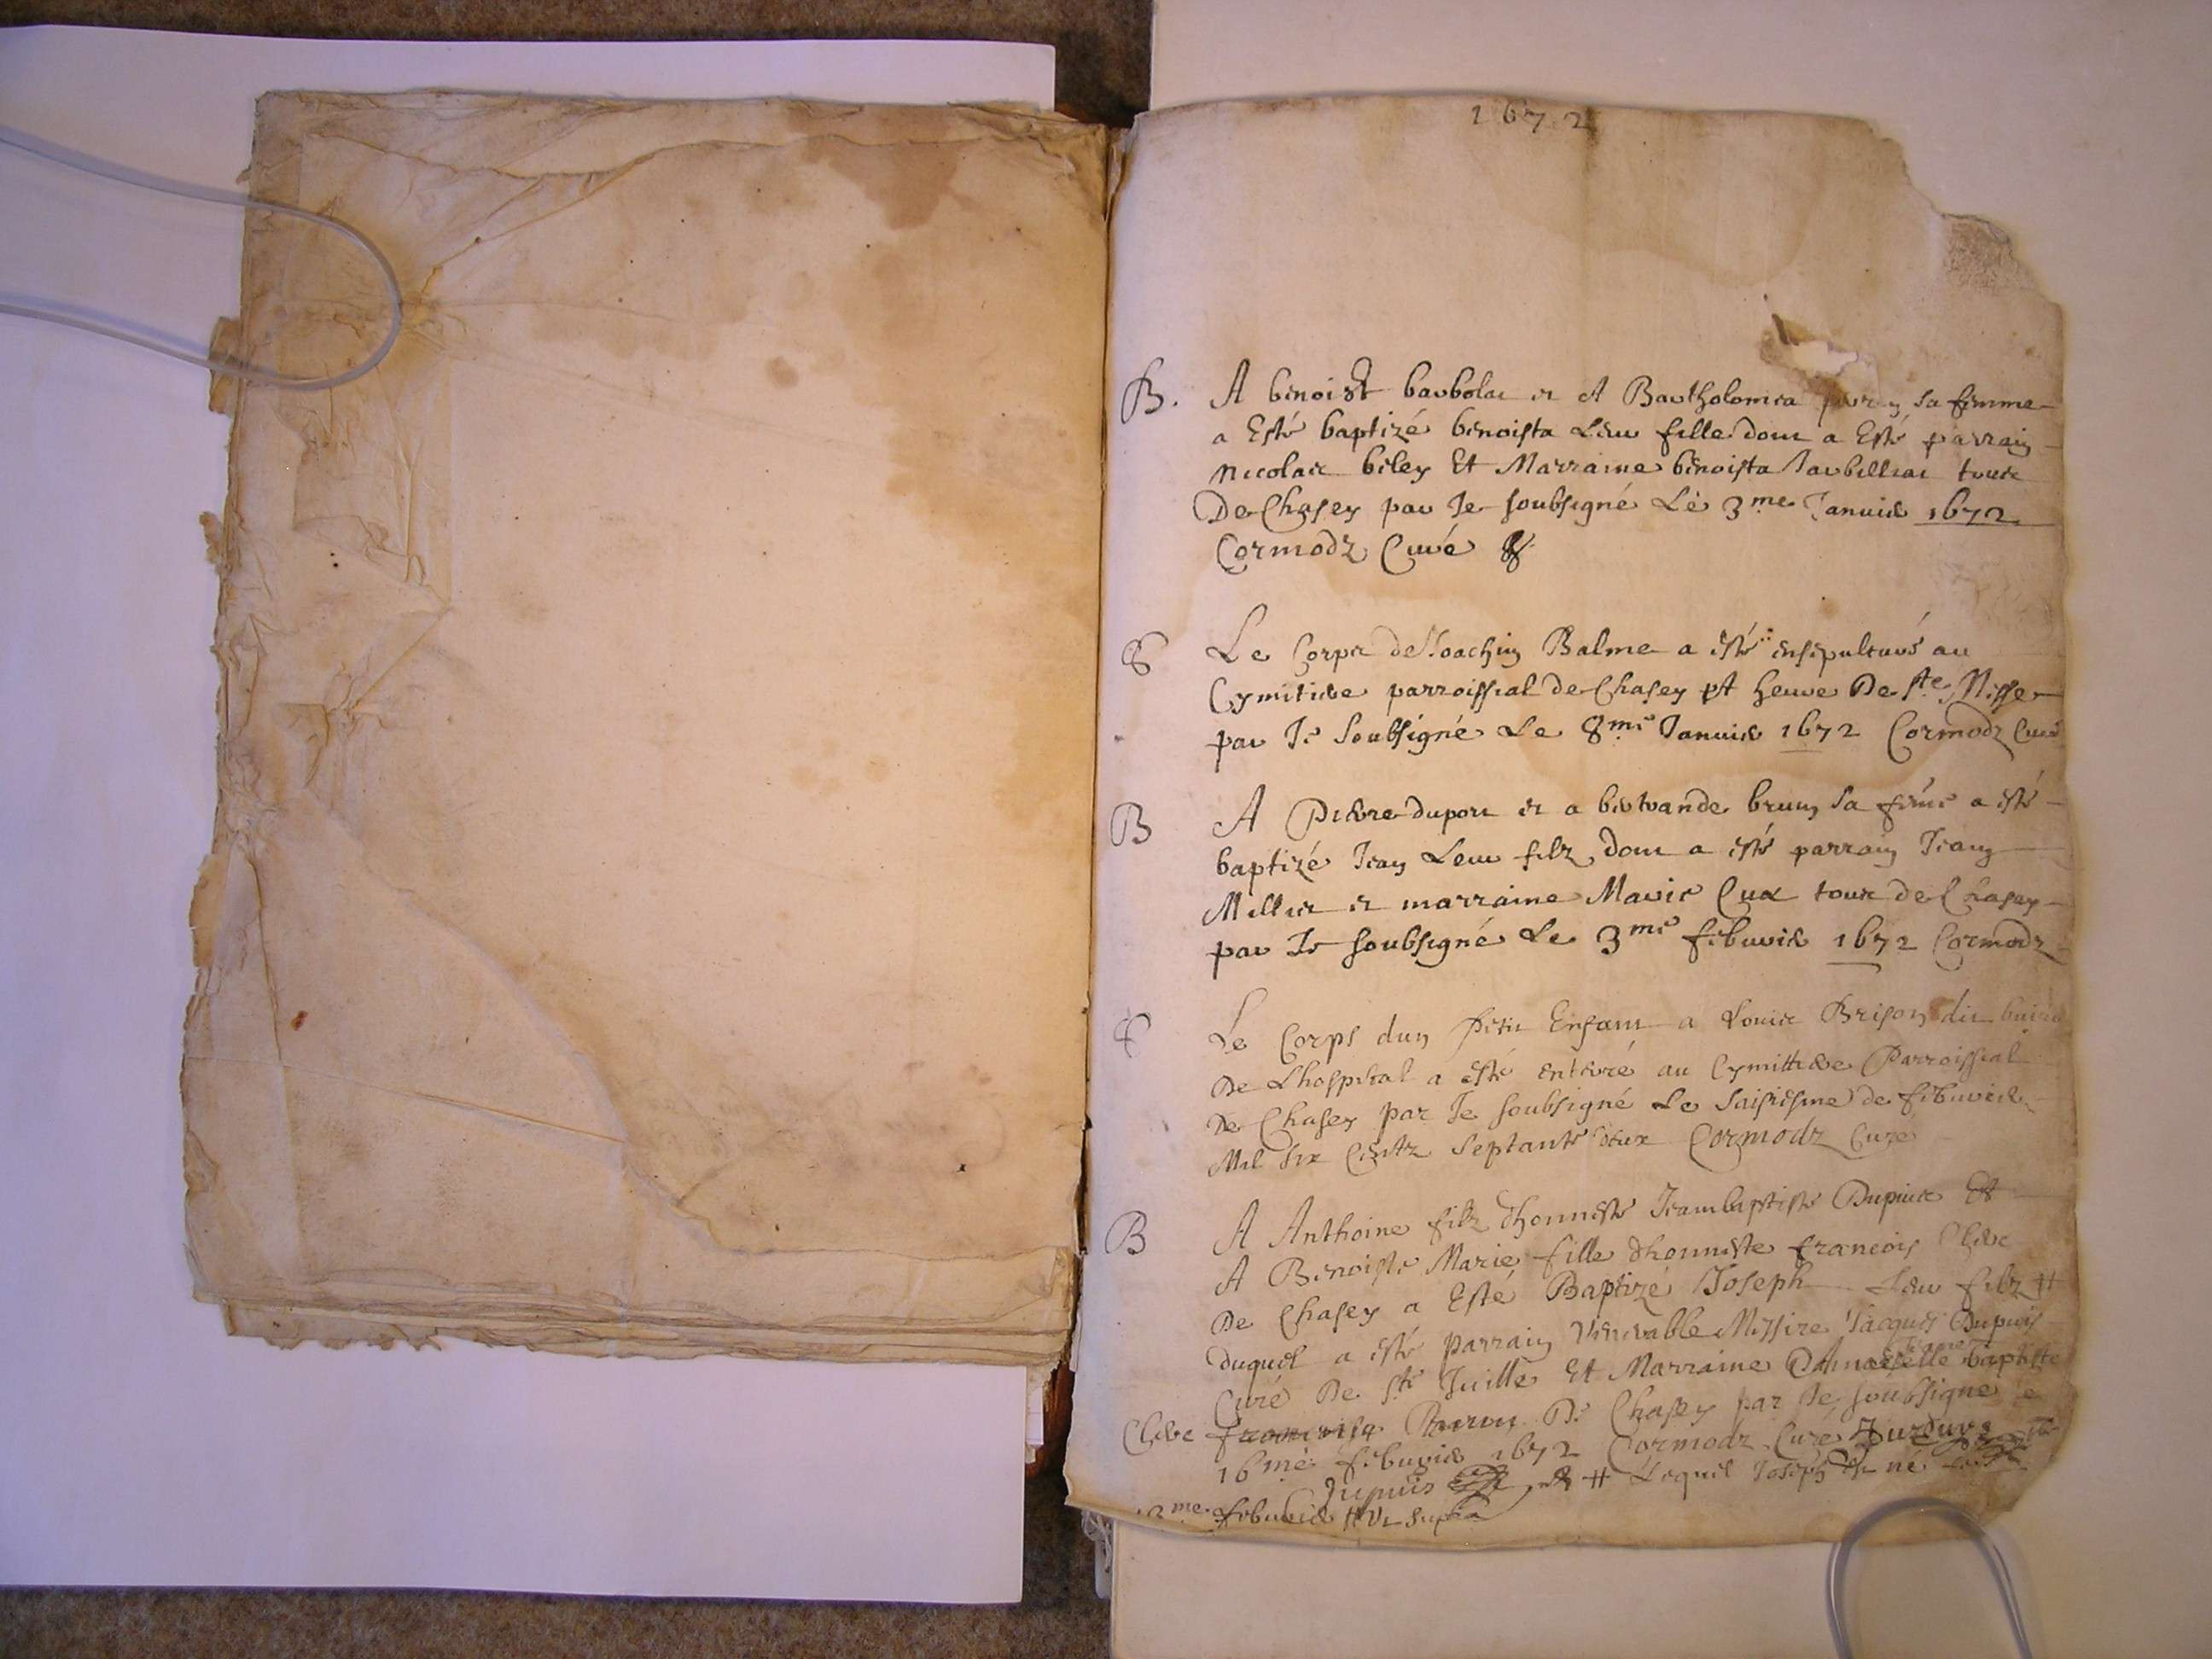 1672
B. A benoist barbolat et A Bartholomea sa femme
a Esté baptizé benoista Leur fille dont a Esté parrain
Nicolas beley Et Marraine benoista tous
De Chasey par Je soubsigné Le 3me Janvier 1672
Cormodz Curé
S Le Corps de Joachin Balme a esté ensepulturé au
Cymitiere parroissial de Chasey pt heure De ste Messe
par Je soubsigné Le 8me Janvier 1672 Cormodz Curé
B A Pierre dupont et a bertrande brun sa feme a esté
baptizé Jean Leur filz dont a esté parrain Jean
Millier et marraine Marie Cua tous de Chasey
par Je soubsigné Le 3me febvrier 1672 Cormodz
S Le Corps dun petit Enfant a Louis Brison dit
De Lhospital a esté enterré au Cymittiere Parroissial
De Chasey par Je soubsigné Le Saisiesme de febvrier
Mil six Centz septante deux Cormodz Curé
B A Anthoine filz dhonneste Jeanbaptiste Dupuis Et
A Benoiste Marie fille dhonneste francois Clerc
De Chasey a Esté Baptizé Joseph Leur filz #
duquel a esté parrain Venerable Messire Jacques Dupuis
Curé De ste Juille Et Marraine Damoiselle Jeane baptiste
Clerc De Chasey par Je soubsigné le
16me febvrier 1672 Cormodz Curé
Dupuis # Lequel Joseph est né
febvrier # Vt supra